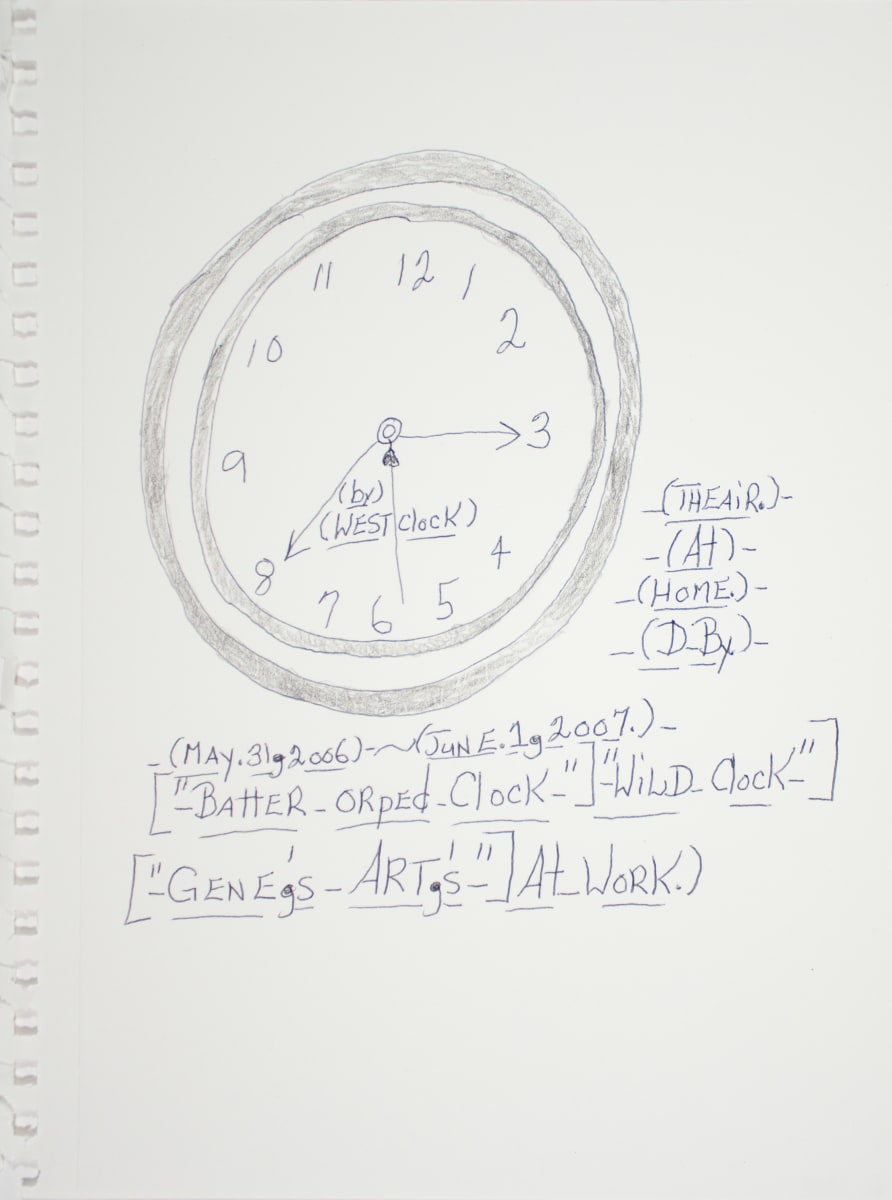 11 12 1
10 2
9 3
8 4
7 6 5
(by)
(WEST Clock)
-(THEAiR.)-
-(At)-
-(HOME.)-
-(D-By)-
-(MAY.31g2006)-~(JUNE.1g2007.)-
["-BATTER-ORPEd-Clock-"]"-WiLD-Clock-"]
["-GENE'gs-ART'gs-"]At-WORK.)